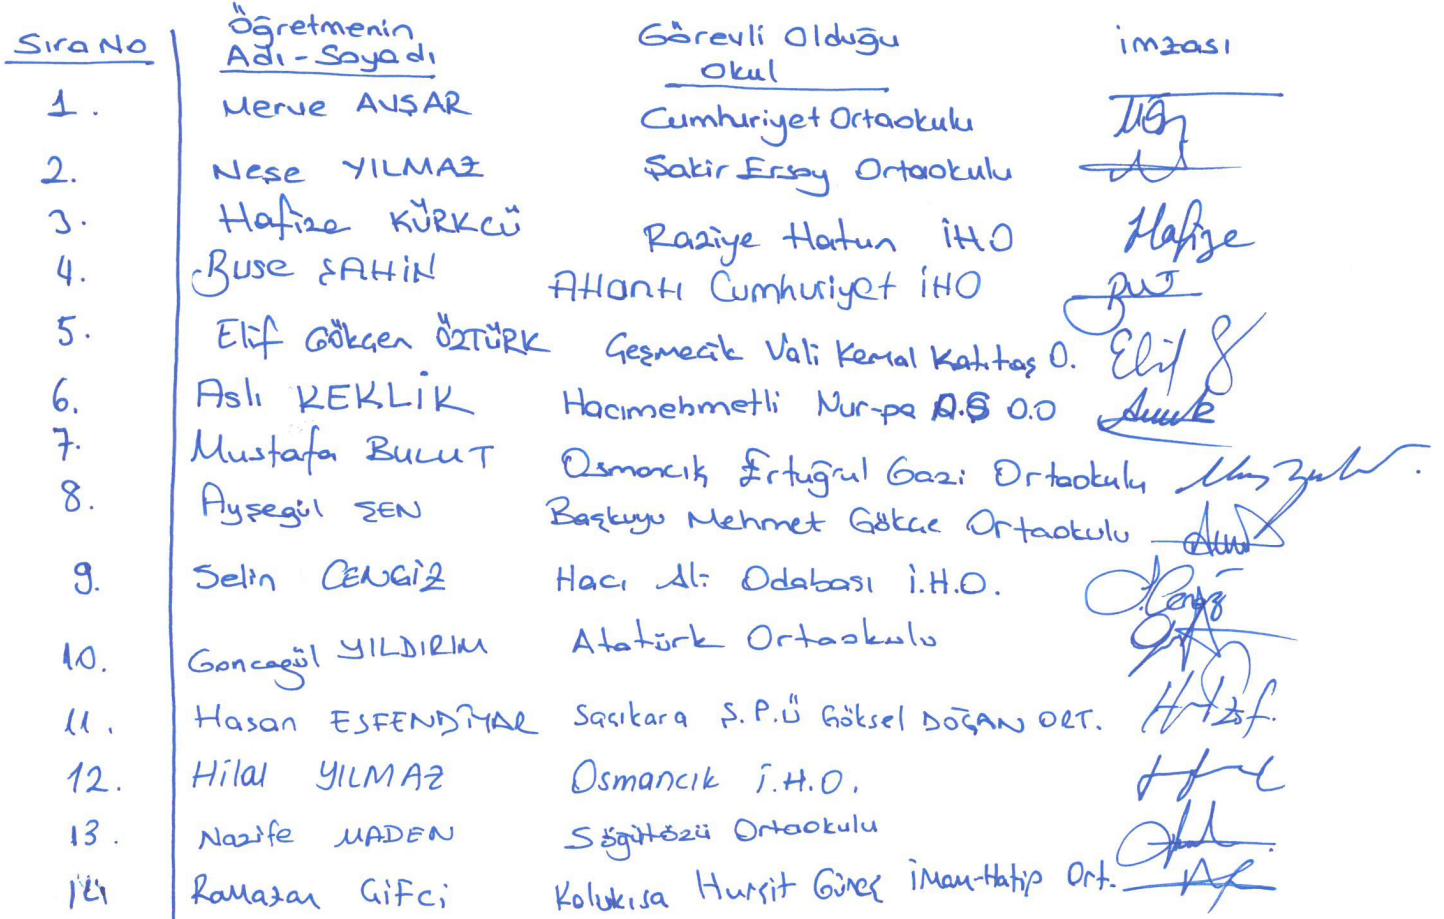 Sıra No Öğretmenin Adı-Soyadı Görevli Olduğu Okul imzası
1. Merve AVŞAR Cumhuriyet Ortaokulu
2. Neşe YILMAZ Şakir Ersoy Ortaokulu
3. Hafize KÜRKCÜ Raziye Hatun İHO Hafize
4. Buse ŞAHİN Atlantı Cumhuriyet İHO
5. Elif Gökçen ÖZTÜRK Çeşmecik Vali Kemal Katıtaş O. Elif
6. Aslı KEKLİK Hacımehmetli Nur-pa O.O
7. Mustafa BULUT Osmancık Ertuğrul Gazi Ortaokulu
8. Ayşegül ŞEN Başkuyu Mehmet Gökçe Ortaokulu
9. Selin CENGİZ Hacı Ali Odabası İ.H.O.
10. Goncagül YILDIRIM Atatürk Ortaokulu
11. Hasan ESFENDİYAR Saçıkara Ş.P.Ü Göksel DOĞAN ORT.
12. Hilal YILMAZ Osmancık İ.H.O.
13. Nazife MADEN Söğütözü Ortaokulu
14 Ramazan Çifci Kolukısa Hurşit Güneş İmam-Hatip Ort.